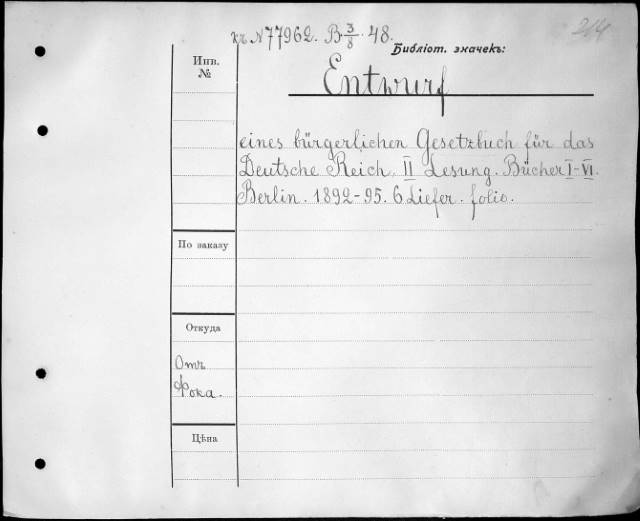 къ N 77962. B 3/8. 48.
214
Библіот. значекъ:
Инв.
№
Entwurf
eines bürgerlichen Gesetzbuch für das
Deutsche Reich, II Lesung. Bücher I-VI.
Berlin. 1892-95. 6 Liefer. folio.
По заказу
Откуда
Отъ
Фока.
Цѣна